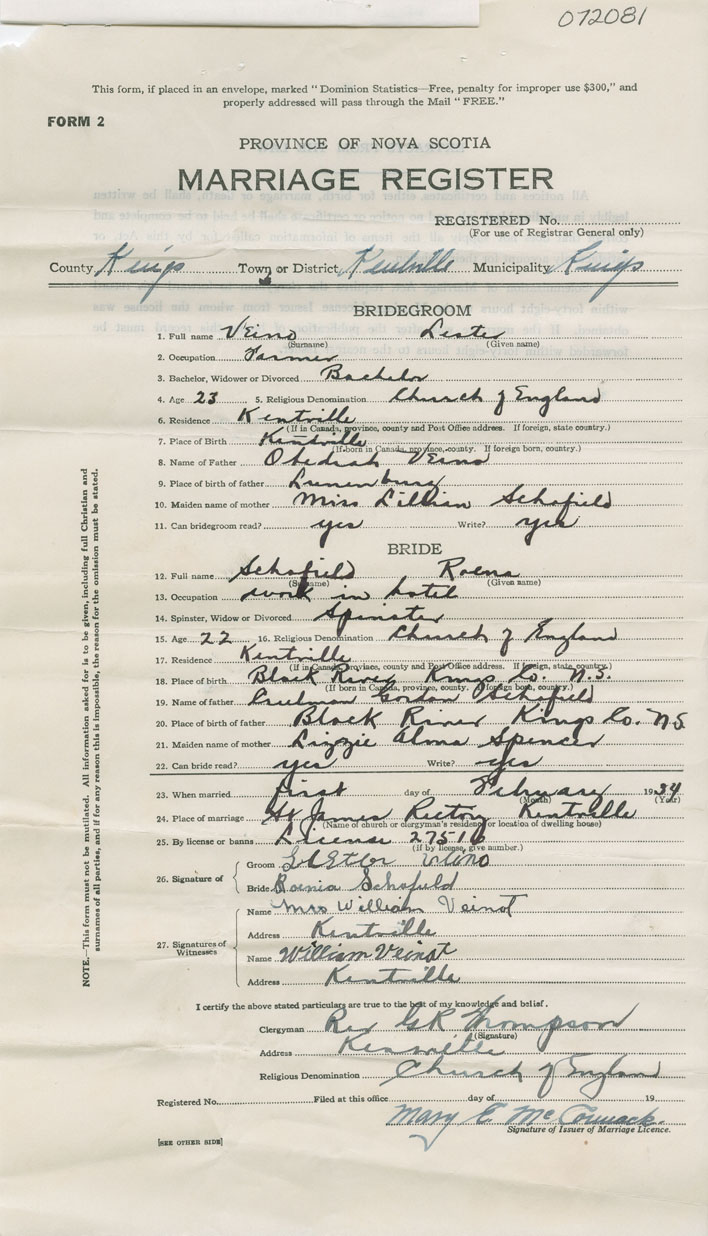 072081
This form, if placed in an envelope, marked "Dominion Statistics—Free, penalty for improper use $300," and
properly addressed will pass through the Mail "FREE."
FORM 2
PROVINCE OF NOVA SCOTIA
MARRIAGE REGISTER
REGISTERED No.
(For use of Registrar General only)
County Kings Town or District Kentville Municipality Kings
BRIDEGROOM
1. Full name Veino Lester
(Surname) (Given name)
2. Occupation Farmer
3. Bachelor, Widower or Divorced Bachelor
4. Age 23 5. Religious Denomination Church of England
6. Residence Kentville
(If in Canada, province, county and Post Office address. If foreign, state country.)
7. Place of Birth Kentville
(If born in Canada, province, county. If foreign born, country.)
8. Name of Father Obediah Veino
9. Place of birth of father Lunenburg
10. Maiden name of mother Miss Lillian Schofield
11. Can bridegroom read? yes Write? yes
BRIDE
12. Full name Schofield Roena
(Surname) (Given name)
13. Occupation work in hotel
14. Spinster, Widow or Divorced Spinster
15. Age 22 16. Religious Denomination Church of England
17. Residence Kentville
(If in Canada, province, county and Post Office address. If foreign, state country.)
18. Place of birth Black River Kings Co. N.S.
(If born in Canada, province, county. If foreign born, country.)
19. Name of father Gordon Schofield
20. Place of birth of father Black River Kings Co. N.S
21. Maiden name of mother Lizzie Alma Spencer
22. Can bride read? yes Write? yes
23. When married first day of February 1934
(Month) (Year)
24. Place of marriage St James Rectory Kentville
(Name of church or clergyman's residence or location of dwelling house)
25. By license or banns License 27516
(If by license, give number.)
26. Signature of
Groom Veino
Bride Roenia Schofield
27. Signatures of Witnesses
Name Mrs William Veinot
Address Kentville
Name William Veinot
Address Kentville
I certify the above stated particulars are true to the best of my knowledge and belief.
Clergyman Rev G R Thompson
(Signature)
Address Kentville
Religious Denomination Church of England
Registered No. Filed at this office day of 19
Mary E McCormack
Signature of Issuer of Marriage Licence.
[SEE OTHER SIDE]
NOTE.—This form must not be mutilated. All information asked for is to be given, including full Christian and
surnames of all parties, and if for any reason this is impossible, the reason for the omission must be stated.